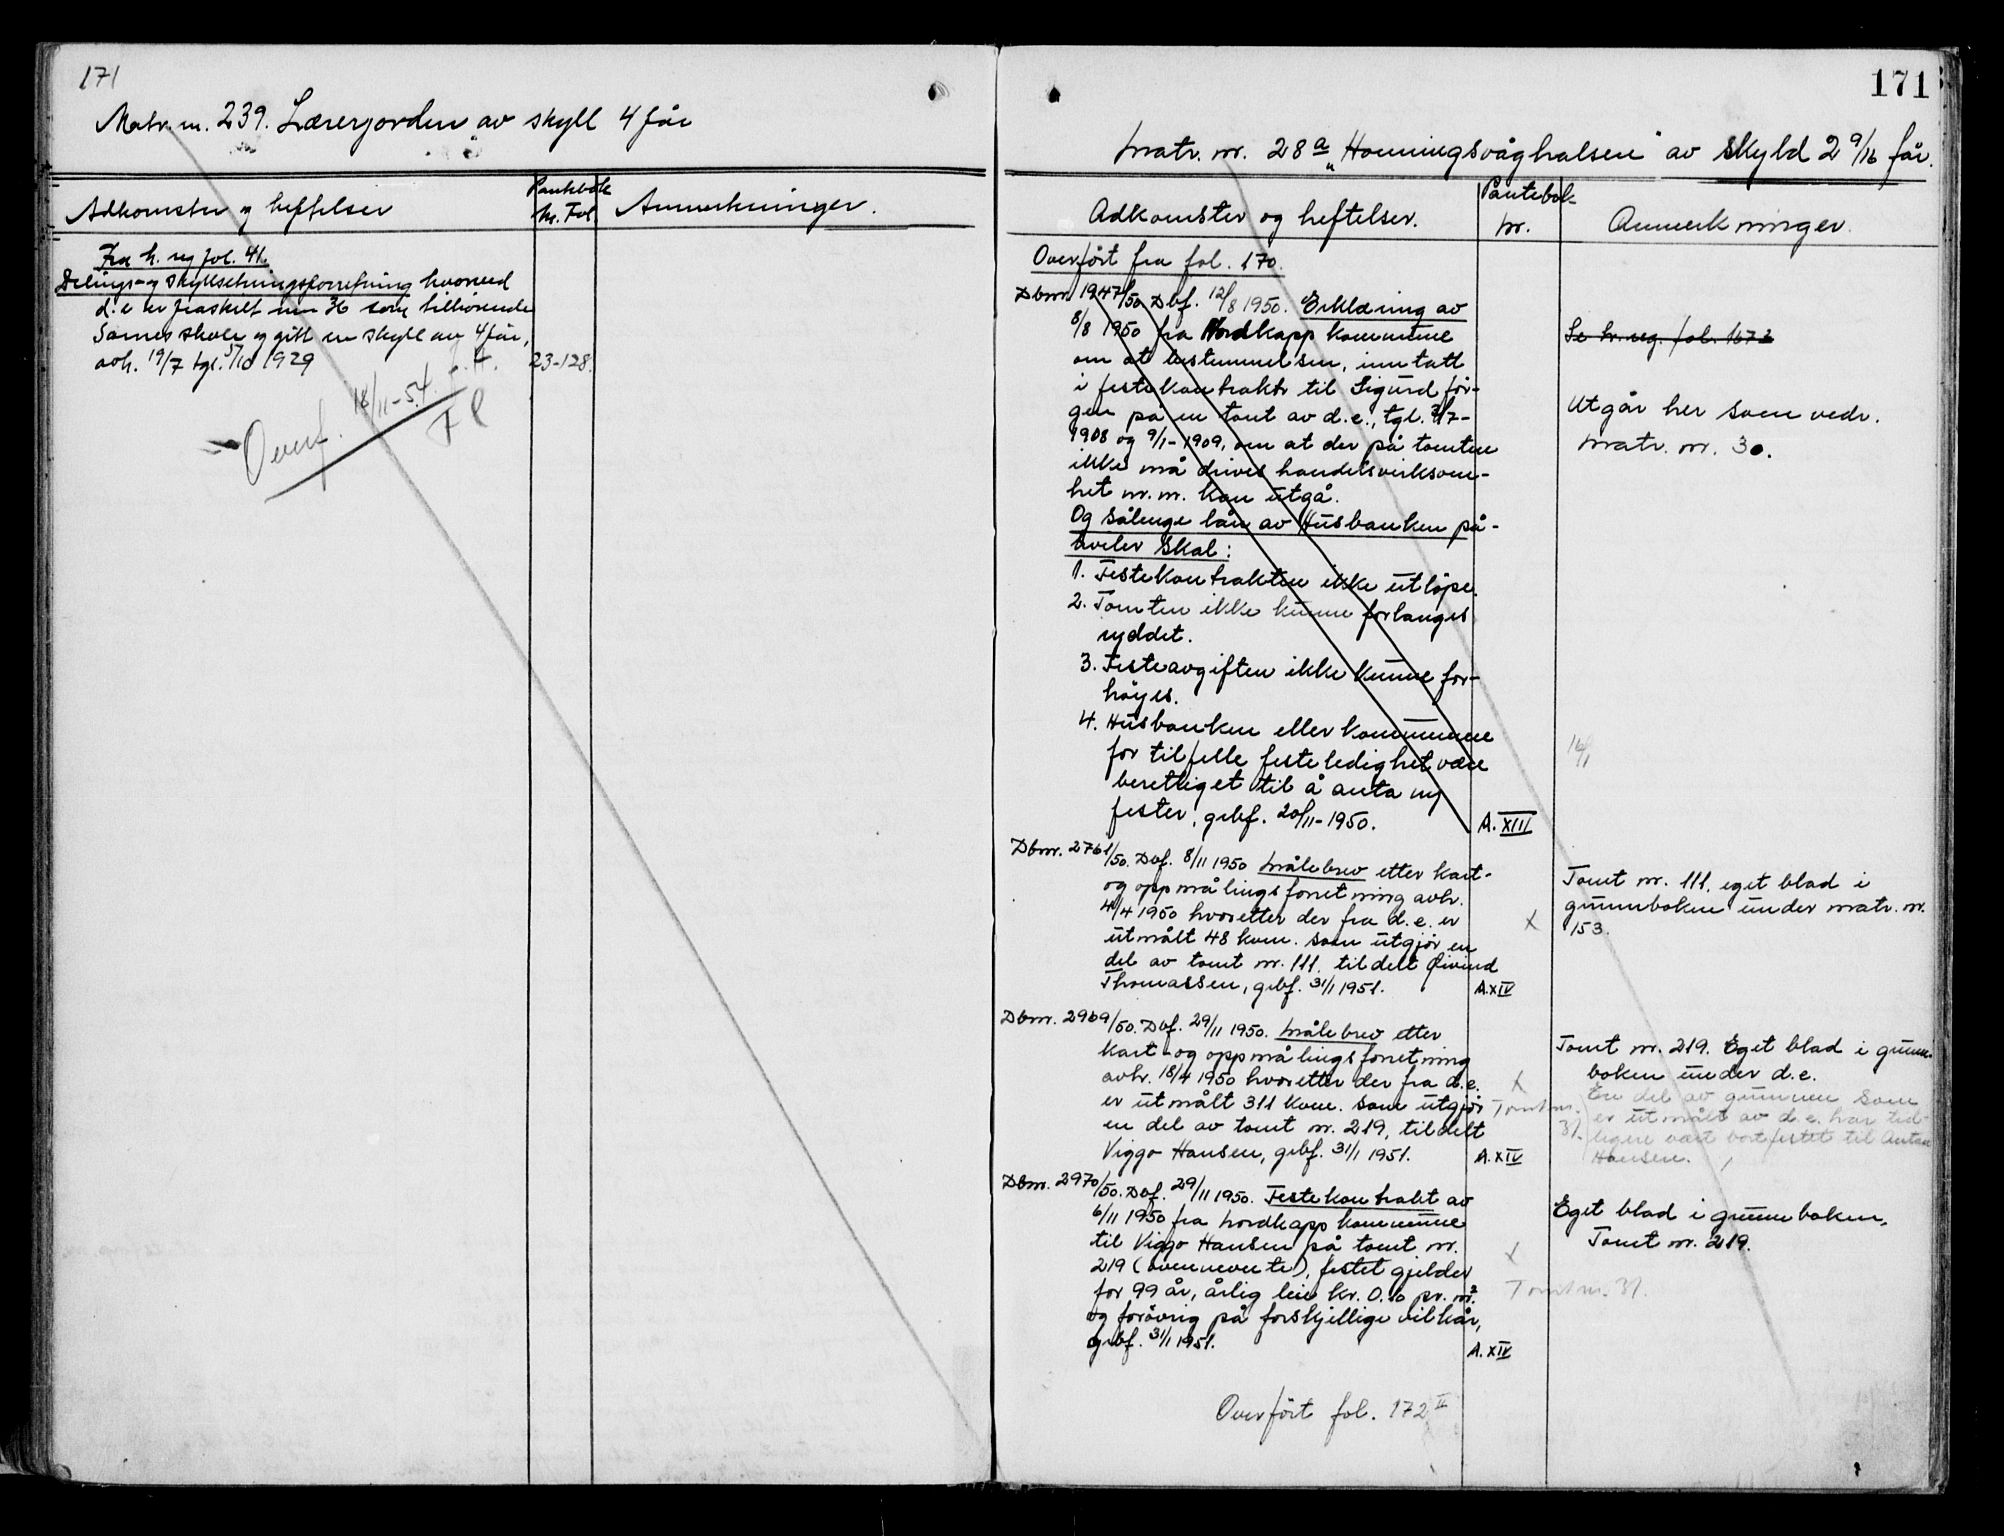 171
Matr. nr. 239. Lærerjorden av skyll 4 får
Adkomster og heftelser
Pantebok
Nr. Fol.
Anmerkninger.
Fra h. reg fol. 41.
Delings- og skyllsetningsforretning hvorved
d.e. er fraskilt m.nr. 36 som tilhørende
Sarnes skole og gitt en skyll av 4 får,
avh. 19/7 tgl. 5/10 1929
23-128.
Overf. 18/11-54.
171
Matr. nr. 28a "Honningsvåghalsen" av skyld 2 9/16 får.
Adkomster og heftelser.
Pantebok-
nr.
Anmerkninger.
Overført fra fol. 170.
Dbnr. 1947/50. Dbf. 12/8 1950. Erklæring av
8/8 1950 fra Nordkapp kommune
om at bestemmelsen, inntatt
i festekontrakt til Sigurd Jør-
gen på en tomt av d.e., tgl. 2/7-
1908 og 9/1-1909, om at der på tomten
ikke må drives handelsvirksom-
het m.m. kan utgå.
Og sålenge lån av Husbanken på-
hviler skal:
1. Festekontrakten ikke utløpe.
2. Tomten ikke kunne forlanges
ryddet.
3. Festeavgiften ikke kunne for-
høyes.
4. Husbanken eller kommunen
for tilfelle festeledighet være
berettiget til å anta ny
fester, grbf. 20/11-1950.
A. XIII
Se h. reg. fol. 167
Utgår her som vedr.
matr. nr. 30.
Dbnr. 2761/50. Dbf. 8/11 1950 Målebrev etter kart-
og oppmålingsforretning avh.
4/4 1950 hvoretter der fra d.e. er
utmålt 48 kvm. som utgjør en
del av tomt nr. 111. tildelt Øivind
Thomassen, grbf. 31/1 1951.
A. XIV
X
Tomt nr. 111. eget blad i
grunnboken under matr. nr.
153.
Dbnr. 2969/50. Dbf. 29/11 1950. Målebrev etter
kart- og oppmålingsforretning
avh. 18/4 1950 hvoretter der fra d.e.
er utmålt 311 kvm. som utgjør
en del av tomt nr. 219, tildelt
Viggo Hansen, grbf. 31/1 1951.
A. XIV
X
Tomt nr.
31.
Tomt nr. 219. Eget blad i grunn-
boken under d.e.
En del av grunnen som
er utmålt av d.e. har tid-
ligere vært bortfestet til Anton
Hansen.
Dbnr. 2970/50. Dbf. 29/11 1950. Festekontrakt av
6/11 1950 fra Nordkapp kommune
til Viggo Hansen på tomt nr.
219 (ovennevnte), festet gjelder
for 99 år, årlig leie kr. 0.10 pr. m2.
og forøvrig på forskjellige vilkår,
grbf. 31/1 1951.
A. XIV
X
Eget blad i grunnboken.
Tomt nr. 219.
Tomt nr. 31.
Overført fol. 172 II